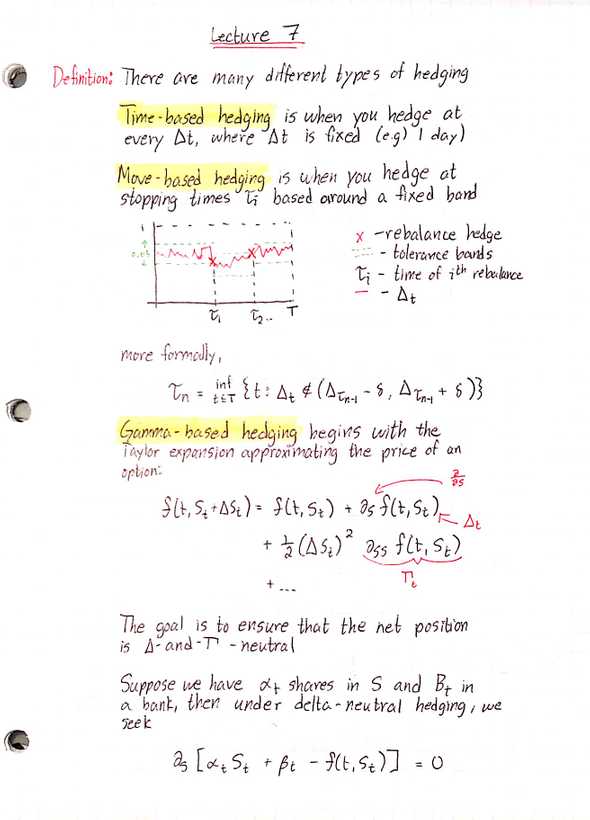 Lecture 7
Definition: There are many different types of hedging
Time-based hedging is when you hedge at
every Δt, where Δt is fixed (e.g) 1 day)
Move-based hedging is when you hedge at
stopping times τi based around a fixed band
1
0.05
τ1 τ2.. T
x - rebalance hedge
- tolerance bands
τi - time of ith rebalance
— - Δt
more formally,
τn = inf t≤T {t: Δt ∉ (Δτn-1 - δ, Δτn-1 + δ)}
Gamma-based hedging begins with the
Taylor expansion approximating the price of an
option:
∂/∂s
f(t, St+ΔSt) = f(t, St) + ∂s f(t, St) Δt
+ 1/2 (ΔSt)² ∂ss f(t, St)
Γt
+ ...
The goal is to ensure that the net position
is Δ-and-Γ-neutral
Suppose we have αt shares in S and Bt in
a bank, then under delta-neutral hedging, we
seek
∂s [αt St + βt - f(t, St)] = 0